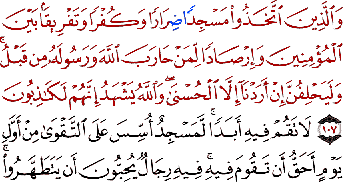 وَالَّذِينَ اتَّخَذُوا مَسْجِدًا ضِرَارًا وَكُفْرًا وَتَفْرِيقًا بَيْنَ
الْمُؤْمِنِينَ وَإِرْصَادًا لِمَنْ حَارَبَ اللَّهَ وَرَسُولَهُ مِن قَبْلُ
وَلَيَحْلِفُنَّ إِنْ أَرَدْنَا إِلَّا الْحُسْنَىٰ وَاللَّهُ يَشْهَدُ إِنَّهُمْ لَكَاذِبُونَ
١٠٧ لَا تَقُمْ فِيهِ أَبَدًا لَّمَسْجِدٌ أُسِّسَ عَلَى التَّقْوَىٰ مِنْ أَوَّلِ
يَوْمٍ أَحَقُّ أَن تَقُومَ فِيهِ فِيهِ رِجَالٌ يُحِبُّونَ أَن يَتَطَهَّرُوا